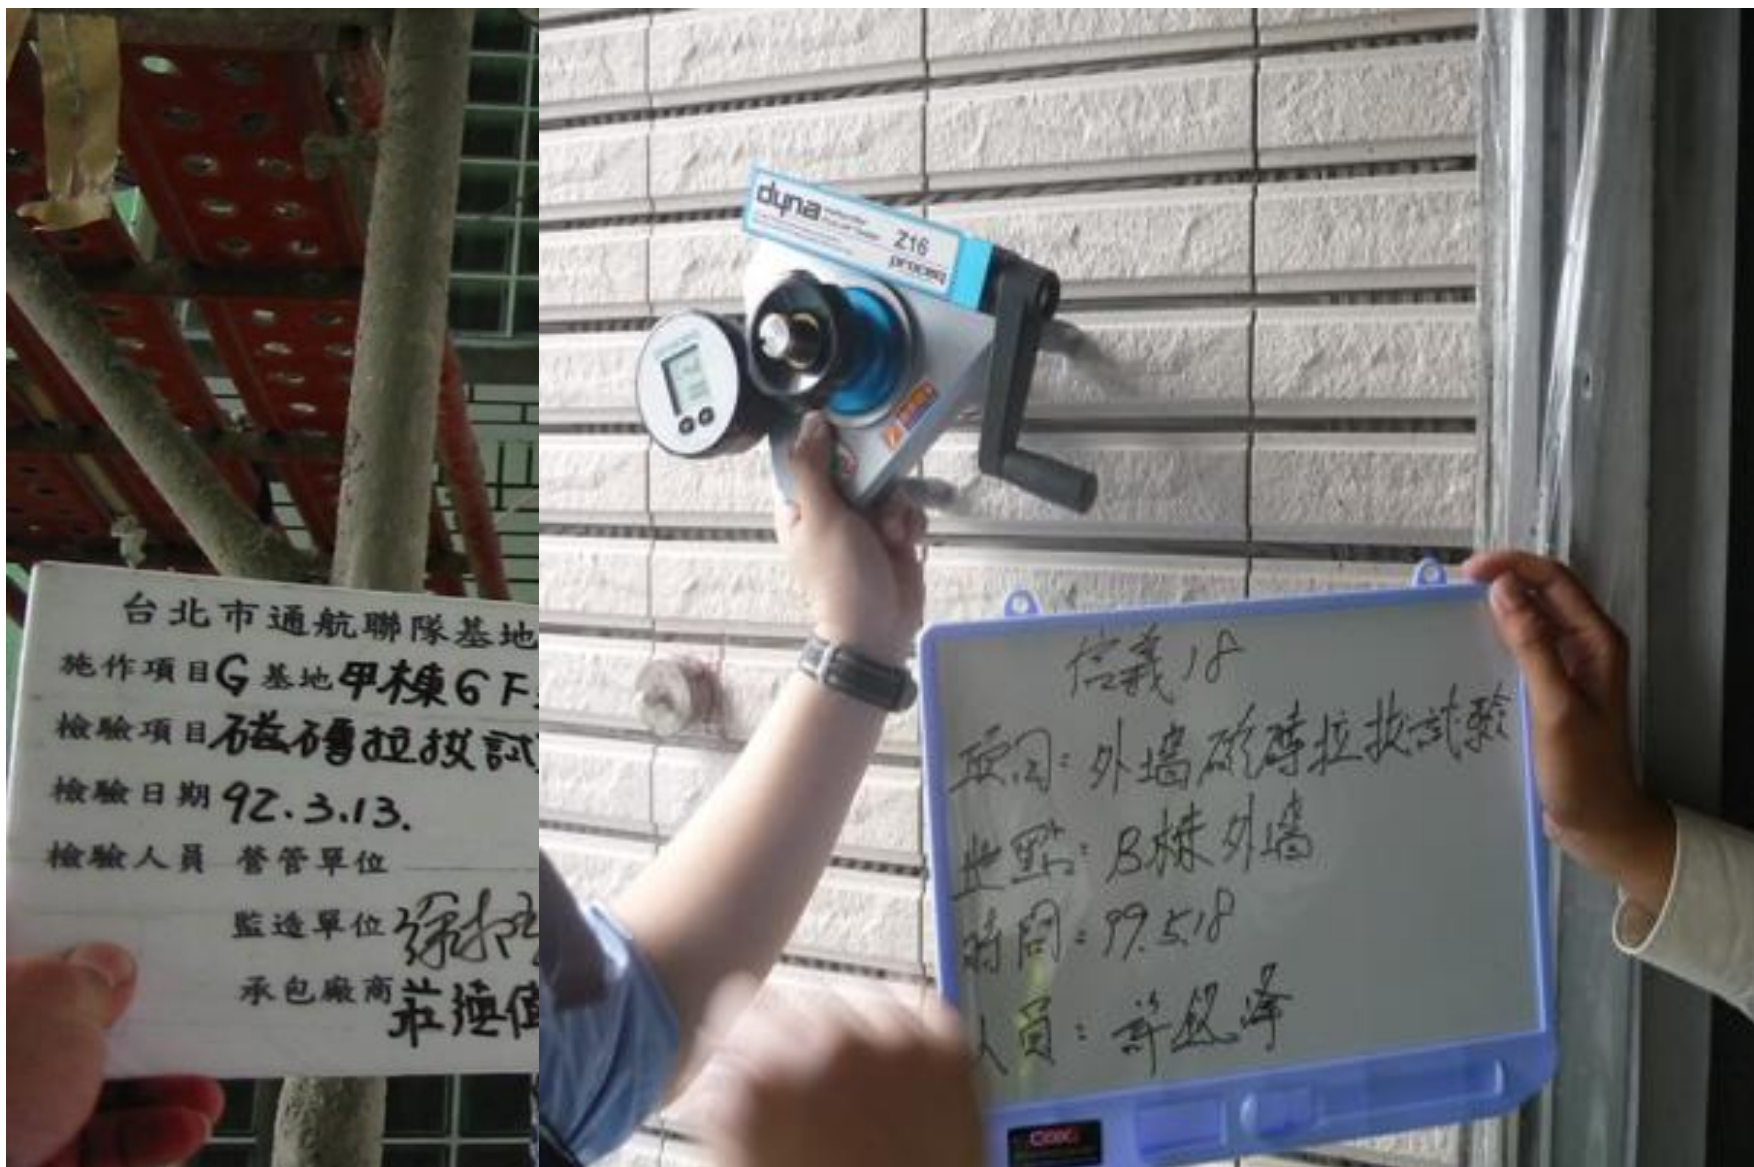 台北市通航聯隊基地
施作項目G基地甲棟6F
檢驗項目磁磚拉拔試
檢驗日期92.3.13.
檢驗人員 營管單位
監造單位
承包廠商莊德
dyna Z16
proceq
信義18
項目:外墻磁磚拉拔試驗
地點:B棟外墻
時間:99.5.18
人員:許